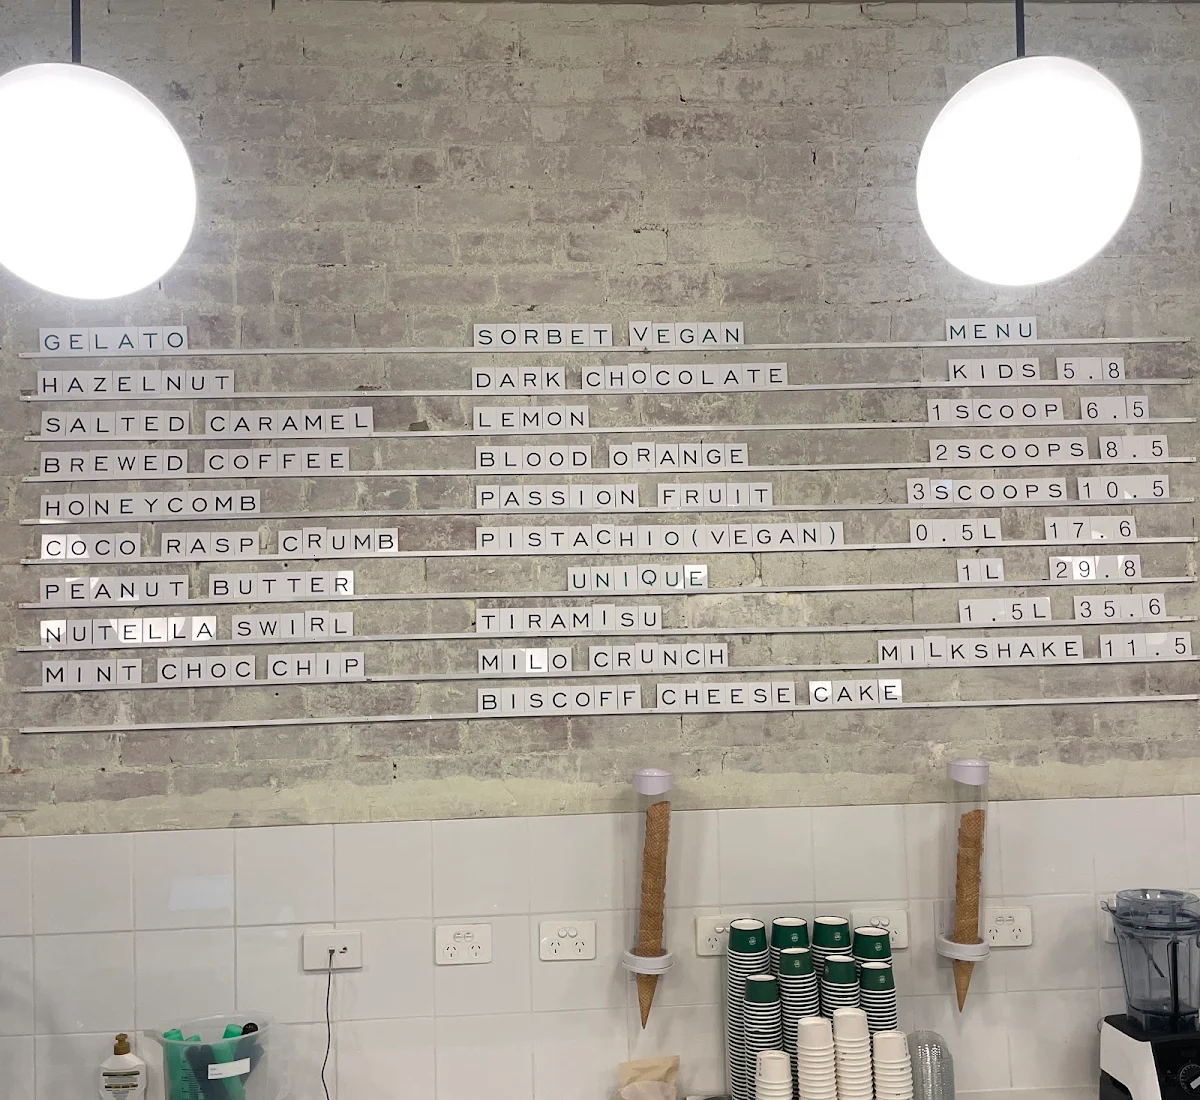 GELATO
HAZELNUT
SALTED CARAMEL
BREWED COFFEE
HONEYCOMB
COCO RASP CRUMB
PEANUT BUTTER
NUTELLA SWIRL
MINT CHOC CHIP
SORBET VEGAN
DARK CHOCOLATE
LEMON
BLOOD ORANGE
PASSION FRUIT
PISTACHIO(VEGAN)
UNIQUE
TIRAMISU
MILO CRUNCH
BISCOFF CHEESE CAKE
MENU
KIDS 5.8
1SCOOP 6.5
2SCOOPS 8.5
3SCOOPS 10.5
0.5L 17.6
1L 29.8
1.5L 35.6
MILKSHAKE 11.5